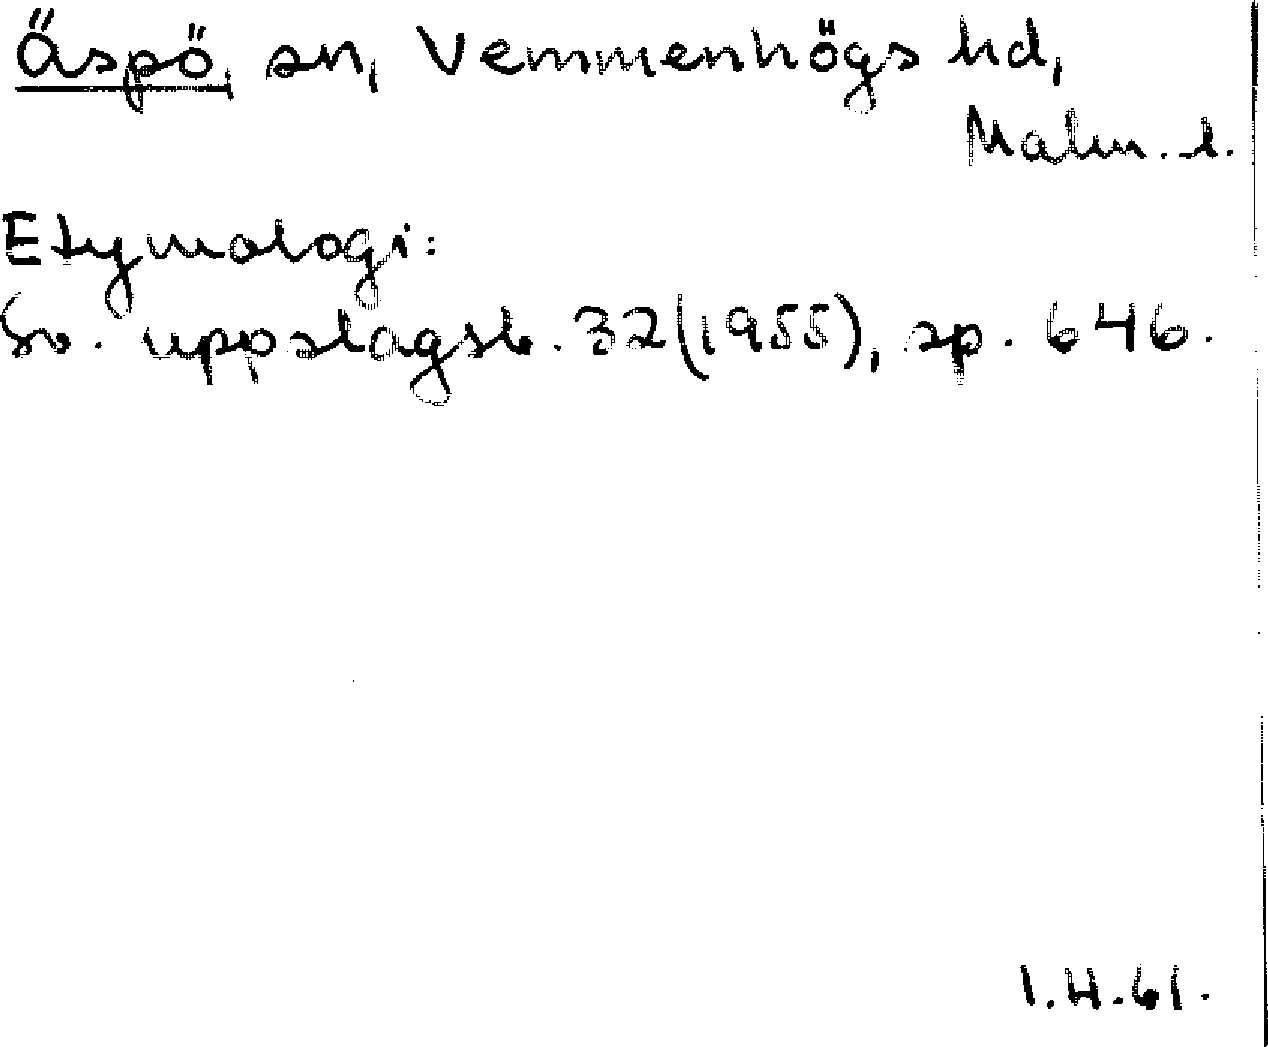 Äspö, sn, Vemmenhögs hd,
Malm. l.
Etymologi:
Sv. uppslagsb. 32(1955), sp. 646.
I.H.61.